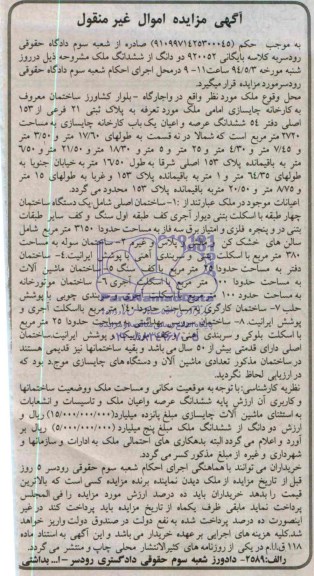 آگهی مزایده اموال غیر منقول
به موجب حکم (۹۱۰۹۹۷۱۴۲۵۳۰۰۰۴۵) صادره از شعبه سوم دادگاه حقوقی
رودسر به کلاسه بایگانی ۹۲۰۰۵۲ دو دانگ از ششدانگ ملک مشروحه ذیل در روز
شنبه مورخه ۹۴/۵/۳ ساعت ۱۱-۹ در محل اجرای احکام شعبه سوم دادگاه حقوقی
رودسر مورد مزایده قرار میگیرد.
محل وقوع ملک مورد نظر واقع در واجارگاه - بلوار کشاورز ساختمان معروف
به کارخانه چایسازی امامی ملک مورد تعرفه به پلاک ثبتی ۲۱ فرعی از ۱۵۳
اصلی دفتر ۵۴ ششدانگ عرصه و اعیان یک باب کارخانه چایسازی به مساحت
۲۷۲۰ متر مربع است که شمالا در نه قسمت به طولهای ۱۷/۶۰ متر و ۳/۵۰ متر
و ۷/۴۵ متر و ۴/۳۰ متر و ۲۵ متر و ۵ متر و ۱۸/۳۰ متر و ۲۱/۵۰ متر و ۶/۵۰
متر به باقیمانده پلاک ۱۵۳ اصلی شرقا به طول ۱۶/۵۰ متر به خیابان جنوبا به
طولهای ۶۴/۳۵ متر و ۱ متر به باقیمانده پلاک ۱۵۳ و غربا به طولهای ۱۵ متر
و ۸/۷۵ متر و ۲۰/۵۰ متر به باقیمانده پلاک ۱۵۳ محدود می گردد.
اعیانات موجود در ملک عبارتند از: ۱- ساختمان اصلی شامل یک دستگاه ساختمان
چهار طبقه با اسکلت بتنی دیوار آجری کف طبقه اول سنگ و کف سایر طبقات
بتنی در و پنجره فلزی و امتیاز برق سه فاز به مساحت حدودا ۳۱۵۰ متر مربع شامل
سالن های خشک کن و غیره ۲- ساختمان سوله به مساحت
۳۸۰ متر مربع با اسکلت و سربندی آهنی با پوشش ایرانیت ۴- ساختمان
دفتر به مساحت حدودا متر مربع با کف سنگ ۵- ساختمان ماشین آلات
به مساحت حدودا متر مربع با اسکلت آجری ۶- ساختمان موتورخانه
به مساحت حدود ۱۰۰ متر سربندی چوبی با پوشش
حلب ۷- ساختمان کارگری به مساحت حدودا ۱۴۰ متر مربع بااسکلت آجری و
پوشش ایرانیت ۸- ساختمان بهداشتی به مساحت حدودا ۲۵ متر مربع
با اسکلت بلوکی و سربندی آهنی و پوشش ایرانیت ساختمان
اصلی دارای قدمتی بیش از ۵۰ سال می باشد و بقیه ساختمانها نیز قدیمی هستند
در ساختمان مذکور تعدادی ماشین آلات و دستگاه های چایسازی موجود بود که
در ارزیابی لحاظ نگردید.
نظریه کارشناسی: با توجه به موقعیت مکانی و مساحت ملک ووضعیت ساختمانها
و کاربری آن ارزش پایه ششدانگ عرصه واعیان ملک و تاسیسات و انشعابات
به استثنای ماشین آلات چایسازی مبلغ پانزده میلیارد (۱۵/۰۰۰/۰۰۰/۰۰۰) ریال و
ارزش دو دانگ از ششدانگ ملک مبلغ پنج میلیارد (۵/۰۰۰/۰۰۰/۰۰۰) ریال بر
آورد و اعلام می گردد البته بدهکاری های احتمالی ملک به ادارات و سازمانها و
شهرداری و غیره از مبلغ مذکور کسر می گردد.
خریداران می توانند با هماهنگی اجرای احکام شعبه سوم حقوقی رودسر ۵ روز
قبل از تاریخ مزایده از ملک دیدن نمایند برنده مزایده کسی است که بالاترین
قیمت را بدهد خریداران باید ده درصد ارزش مورد مزایده را فی المجلس
پرداخت نماید مابقی ظرف یکماه از تاریخ مزایده باید پرداخت کند در غیر
اینصورت ده درصد پرداخت شده به نفع دولت در صندوق دولت واریز خواهد
شد.کلیه هزینه های اجرایی بر عهده خریدار می باشد و این آگهی به استناد ماده
۱۱۸ ق.ا.م در یکی از روزنامه های کثیرالانتشار محلی چاپ و منتشر می گردد.
رالف:۲۵۸۹- دادورز شعبه سوم حقوقی دادگستری رودسر - ا... بداشتی